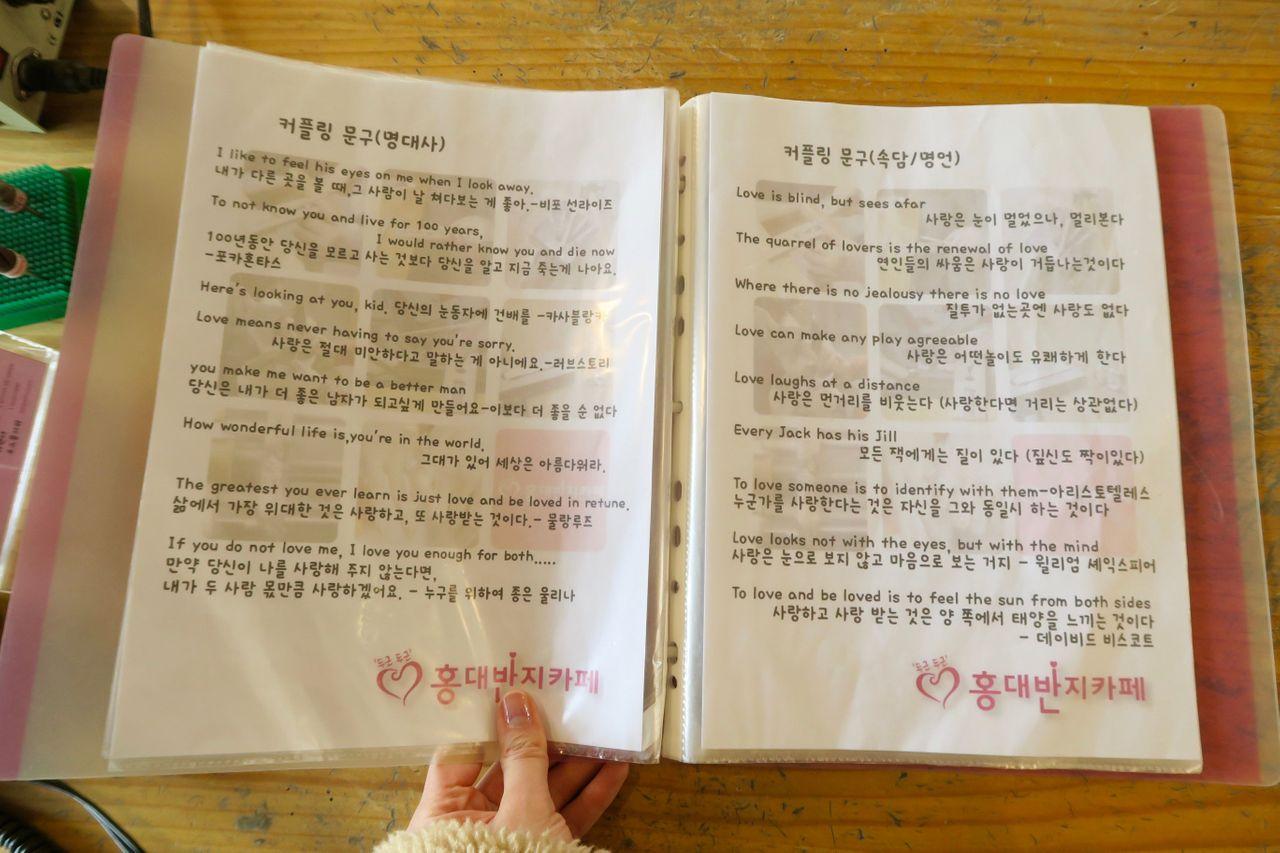 커플링 문구(명대사)
I like to feel his eyes on me when I look away.
내가 다른 곳을 볼 때,그 사람이 날 쳐다보는 게 좋아.-비포 선라이즈
To not know you and live for 100 years,
I would rather know you and die now
100년동안 당신을 모르고 사는 것보다 당신을 알고 지금 죽는게 나아요.
-포카혼타스
Here's looking at you, kid. 당신의 눈동자에 건배를 -카사블랑카
Love means never having to say you're sorry.
사랑은 절대 미안하다고 말하는 게 아니에요.-러브스토리
you make me want to be a better man
당신은 내가 더 좋은 남자가 되고싶게 만들어요-이보다 더 좋을 순 없다
How wonderful life is,you're in the world.
그대가 있어 세상은 아름다워라.
The greatest you ever learn is just love and be loved in retune.
삶에서 가장 위대한 것은 사랑하고, 또 사랑받는 것이다.- 물랑루즈
If you do not love me, I love you enough for both.....
만약 당신이 나를 사랑해 주지 않는다면,
내가 두 사람 몫만큼 사랑하겠어요. - 누구를 위하여 종은 울리나
'두근 두근'
홍대반지카페
커플링 문구(속담/명언)
Love is blind, but sees afar
사랑은 눈이 멀었으나, 멀리본다
The quarrel of lovers is the renewal of love
연인들의 싸움은 사랑이 거듭나는것이다
Where there is no jealousy there is no love
질투가 없는곳엔 사랑도 없다
Love can make any play agreeable
사랑은 어떤놀이도 유쾌하게 한다
Love laughs at a distance
사랑은 먼거리를 비웃는다 (사랑한다면 거리는 상관없다)
Every Jack has his Jill
모든 잭에게는 질이 있다 (짚신도 짝이있다)
To love someone is to identify with them-아리스토텔레스
누군가를 사랑한다는 것은 자신을 그와 동일시 하는 것이다
Love looks not with the eyes, but with the mind
사랑은 눈으로 보지 않고 마음으로 보는 거지 - 윌리엄 셰익스피어
To love and be loved is to feel the sun from both sides
사랑하고 사랑 받는 것은 양 쪽에서 태양을 느끼는 것이다
- 데이비드 비스코트
'두근 두근'
홍대반지카페